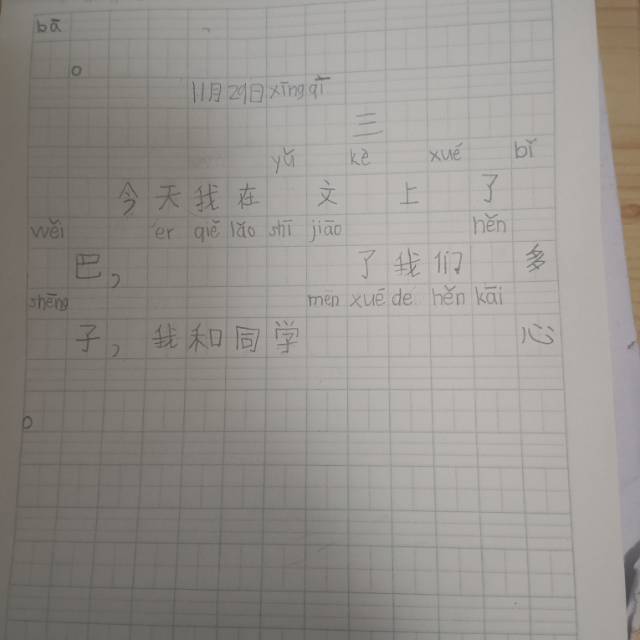 bā
。
11月29日 xīng qī
三
yǔ kè xué bǐ
今天我在 文 上 了
wěi ér qiě lǎo shī jiāo hěn
巴, 了我们 多
shēng men xué de hěn kāi
子,我和同学 心
。